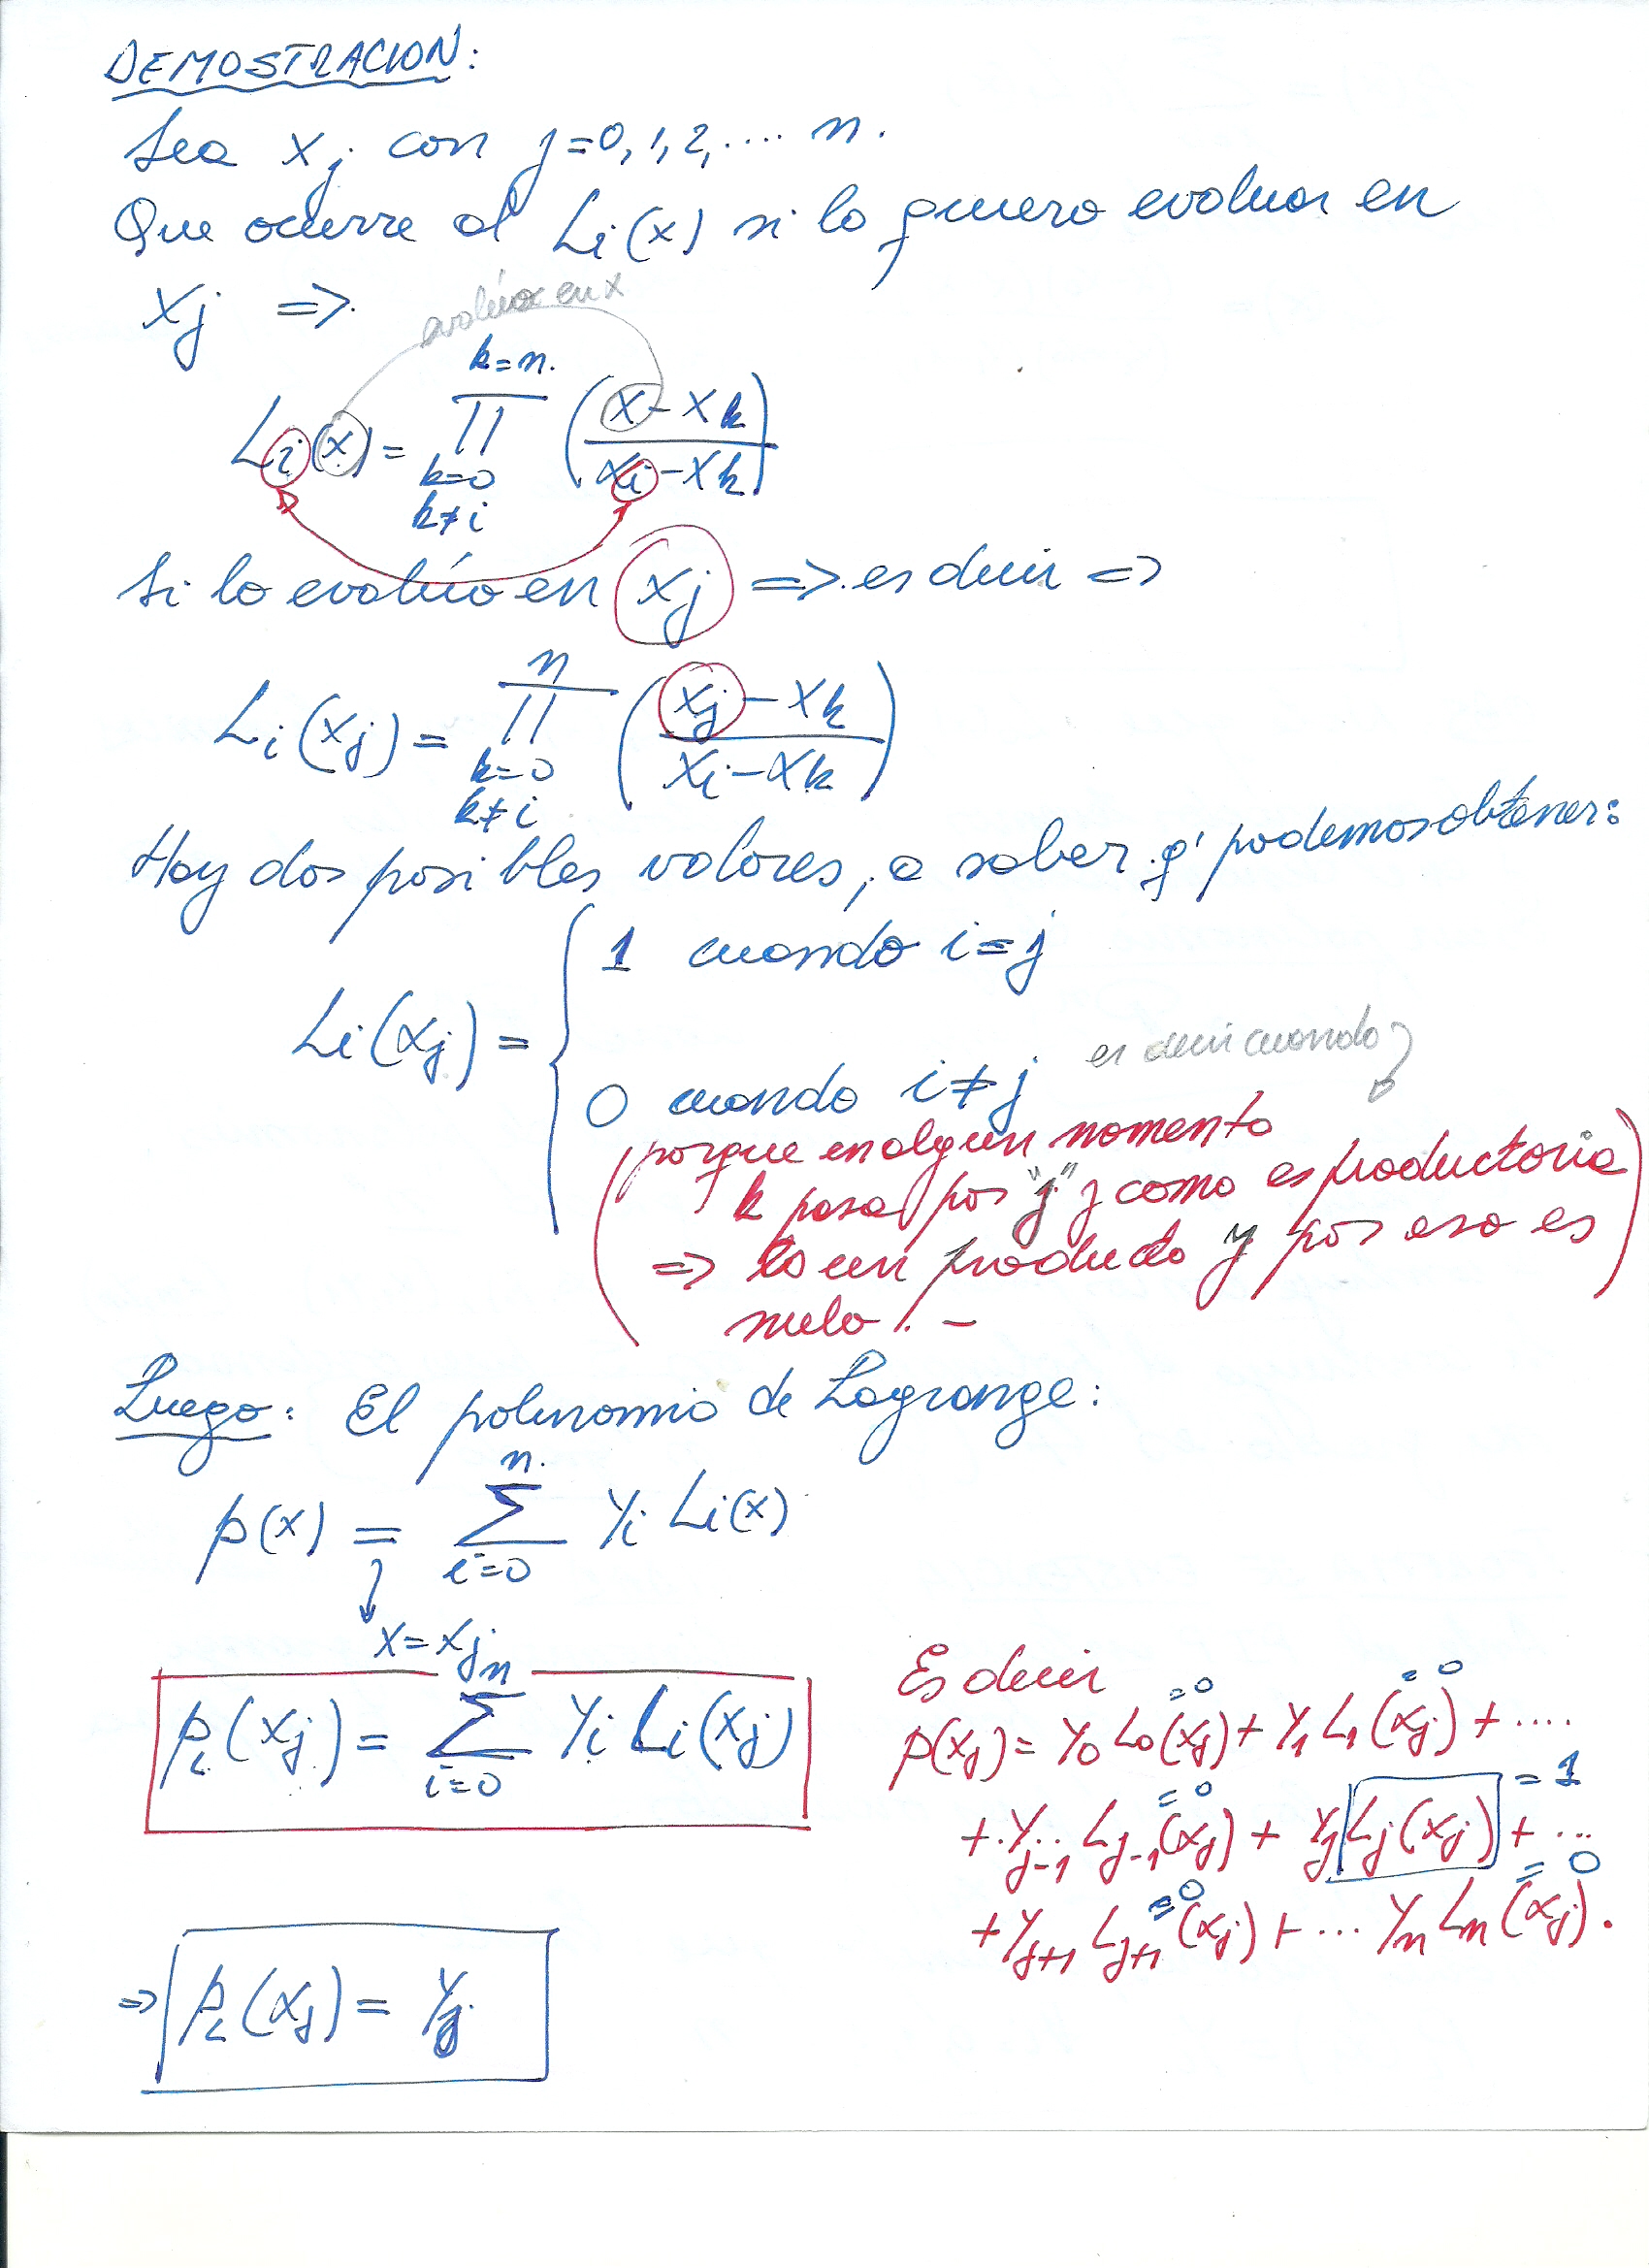 DEMOSTRACION:
Sea xj con j=0,1,2,.... n.
Que ocurre al Li(x) si lo quiero evaluar en
xj =>.
evalúo en x
Li(x) = ∏ (k=0, k≠i; k=n.) ((x-xk)/(xi-xk))
Si lo evalúo en xj =>. es decir =>
Li(xj) = ∏ (k=0, k≠i; n) ((xj-xk)/(xi-xk))
Hay dos posibles valores, a saber q' podemos obtener:
Li(xj) = { 1 cuando i=j
0 cuando i≠j es decir cuando
(porque en algun momento
k pasa por "j" y como es productoria
=> es un producto y por eso es
nulo!. -)
Luego: El polinomio de Lagrange:
p(x) = ∑ (i=0; n.) yi Li(x)
x=xj
pL(xj) = ∑ (i=0; n) yi Li(xj)
Es decir
p(xj) = y0 L0(xj) =0 + y1 L1(xj) =0 + ....
+.. yj-1 Lj-1(xj) =0 + yj Lj(xj) =1 + ...
+ yj+1 Lj+1(xj) =0 + ... yn Ln(xj) =0.
=> pL(xj) = yj